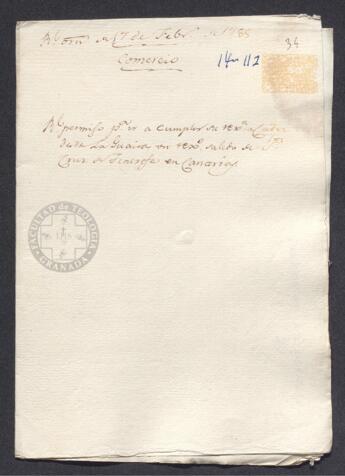 Rl. orn. de 7 de Febro. de 1785
34
Comercio
14 112
Rl. permiso pa. ir a cumplir su
desde La Guaira en salido de Sta.
Cruz de Tenerife en Canarias.
FACULTAD de TEOLOGIA
GRANADA